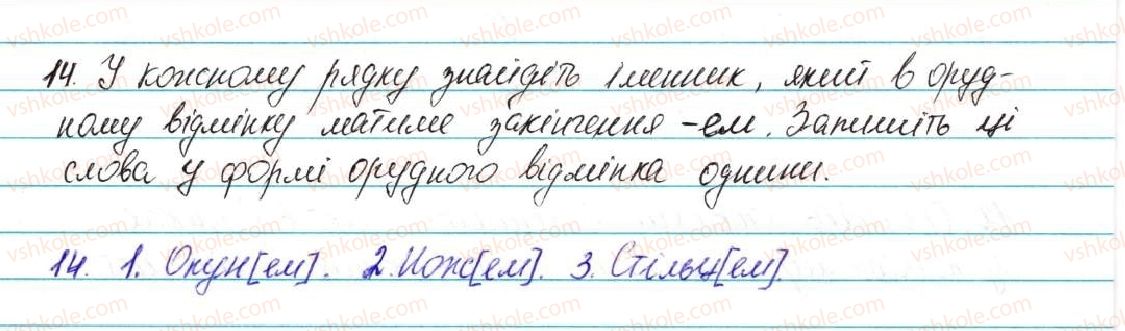 14. У кожному рядку знайдіть іменник, який в оруд-
ному відмінку матиме закінчення -ем. Запишіть ці
слова у формі орудного відмінка однини.
14. 1. Окун[ем]. 2. Нож[ем]. 3. Стільц[ем].